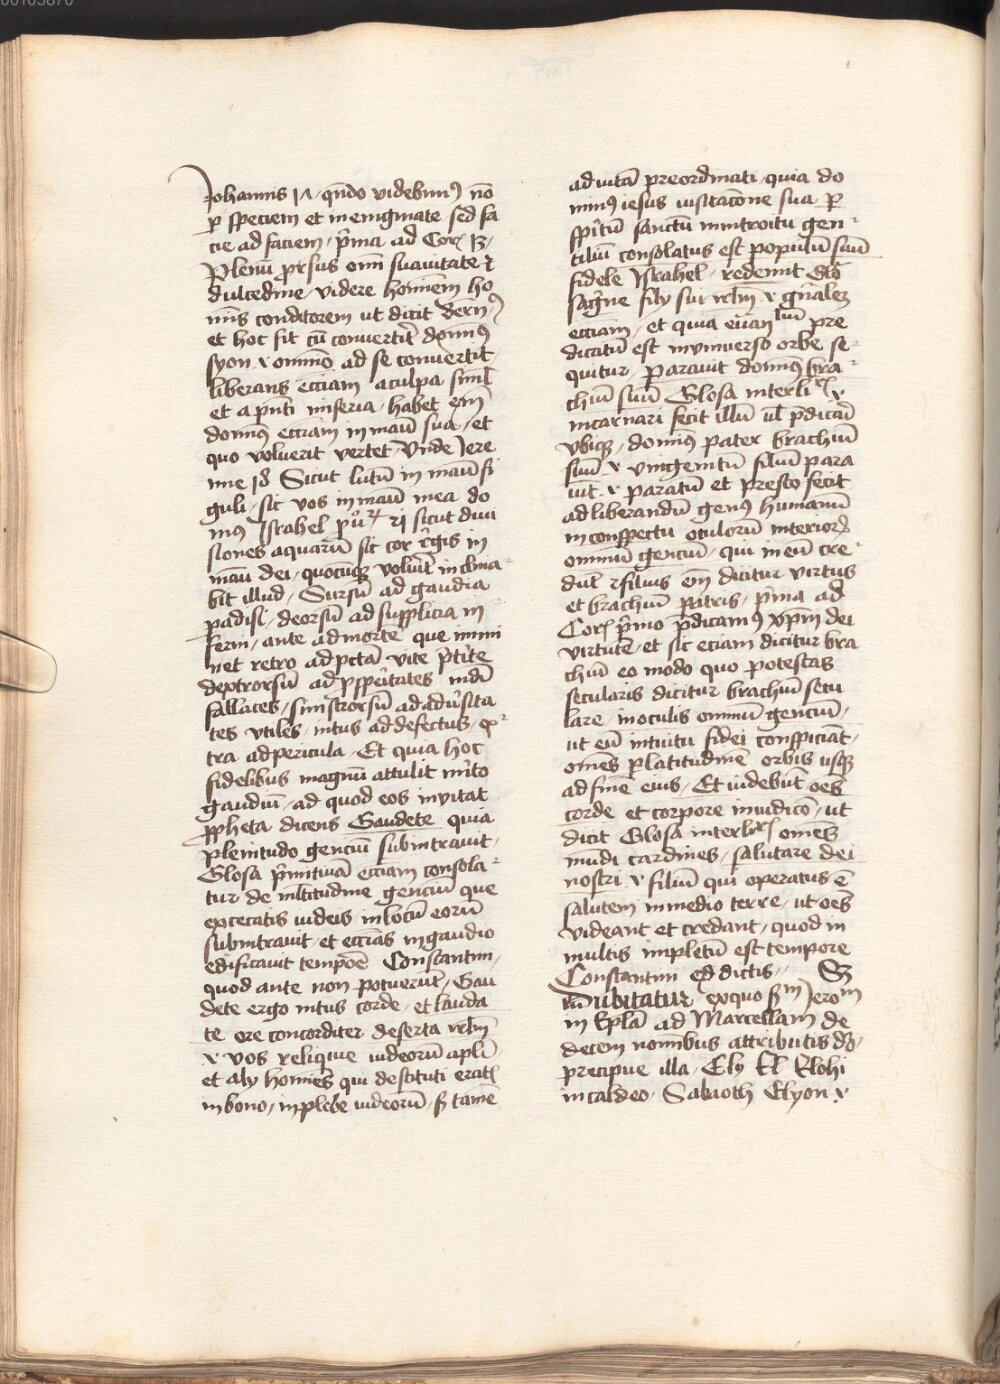 Johannis 17, qn̄do videbim⁹ nō
ꝑ speciem et in enigmate sed fa
cie ad faciem, p̄ma ad Cor. 13,
Plenū prorsus om̄i suavitate ⁊
dulcedine videre hominem ho
minis conditorem ut dicit bern̄,
et hoc fit cū convertit̄ domin⁹
syon .i. om̄ino ad se convertit
liberans ecc̄iam a culpa simul
et a pn̄ti miseria, habet em̄
domin⁹ ecc̄iam in manu sua, et
quo voluerit vertet Unde Jere
mie 18 Sicut lutū in manu fi
guli, sic vos in manu mea do
mus Israhel prov 21 sicut divi
siones aquarū sic cor regis in
manu dei, quocūqꝫ voluerit inclina
bit illud, Sursū ad gaudia
padisi, deorsū ad supplicia in
ferni, ante ad mortē que immi
net retro ad pctā vite p̄terite
dextrorsū ad ꝓsperitates mūdi
fallaces, sinistrorsū ad adversita
tes utiles, intus ad defectus, ex
tra ad pericula, Et quia hoc
fidelibus magnū attulit m̄ito
gaudiū, ad quod eos invitat
ꝓpheta dicens Gaudete quia
plenitudo genciū subintravit,
Glosa p̄mitivā ecc̄iam consola
tur de m̄ltitudine genciū que
excecatis iudeis in locū eorū
subintravit, et ecc̄ias in gaudio
edificavit tempore Constantini,
quod ante non potuerūt, Gau
dete ergo intus corde, et lauda
te ore concorditer deserta irl̄m
.i. vos reliquie iudeorū ap̄li
et alij homines qui destituti eratis
in bono, in plebe iudeorū, s̄ tamē
ad vitā preordinati, quia do
min⁹ iesus visitac̄one sua, ꝑ
sp̄itū sanctū in introitu gen
tiliū consolatus est populū suū
fidelē Israhel, redemit Glō
sāgūine filij sui irl̄m .i. gn̄alem
ecc̄iam, et quia ewangeliū pre
dicatū est in universo orbe se
quitur, paravit domin⁹ bra
chiū suū Glosa interli .i.
incarnari fecit illū ul̄ p̄dicari
ubiqꝫ, domin⁹ pater brachiū
suū .i. unigenitū filiū para
vit .i. paratū et presto fecit
ad liberandū gen⁹ humanū
in conspectu oculorū interiorū
omniū genciū, qui in eū cre
dūt, filius em̄ dicitur virtus
et brachiū patris, p̄ma ad
Cor. p̄mo p̄dicam⁹ xp̄m dei
virtutē, et sic eciam dicitur bra
chiū eo modo quo potestas
secularis dicitur brachiū secu
lare, in oculis omniū genciū,
ut eū intuitu fidei conspiciāt,
omēs ꝑ latitudinē orbis usqꝫ
ad finē eius, Et videbūt oēs
corde et corpore in iudicio, ut
dicit Glosa interli omēs
mūdi cardines, salutare dei
nostri .i. filiū qui operatus ē
salutem in medio terre, ut oēs
videant et credant, quod in
multis impletū est tempore
Constantini ex dictis,, S
Dubitatur exquo s̄m Jerom
in Epl̄a ad Marcellam de
decem nominibus attributis deo,
precipue illa, Ely El Elohi
in caldeo, Sabaoth Elyon .i.